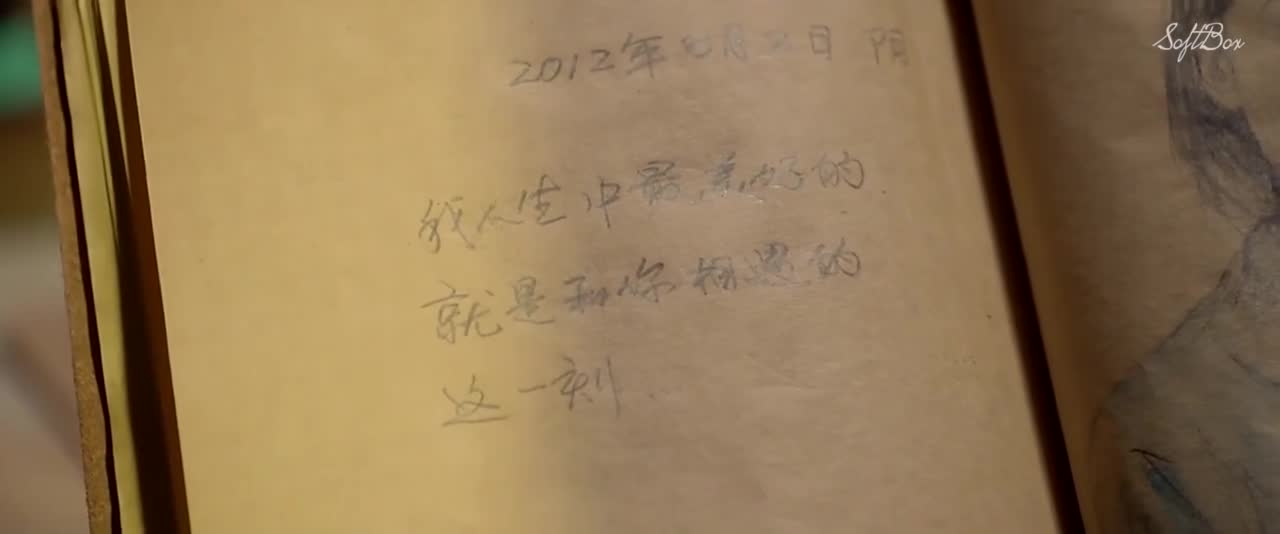 SoftBox
2012年 月 日 阴
我人生中最美好的
就是和你相遇的
这一刻...